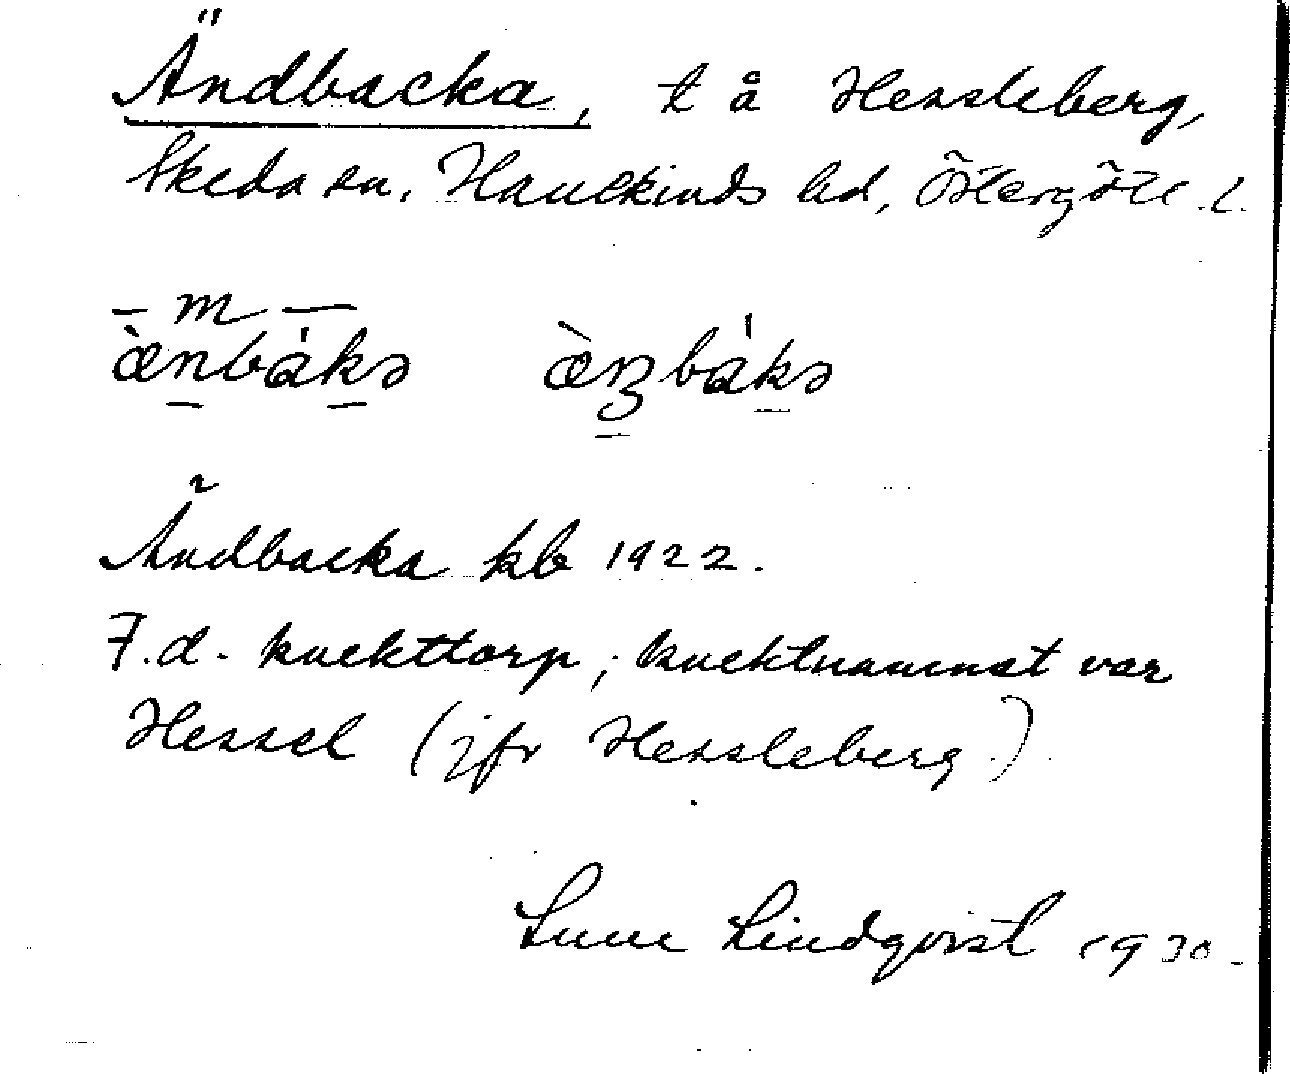 Ändbacka, t å Hessleberg,
Skeda sn. Hanekinds hd, Östergötl. l.
– m –
ànbák<span>ə</span> æ̀nbákə
Ändbacka kb 1922.
F.d. knekttorp; knektnamnet var
Hessel (jfr Hessleberg)
Sune Lindqvist 1930.